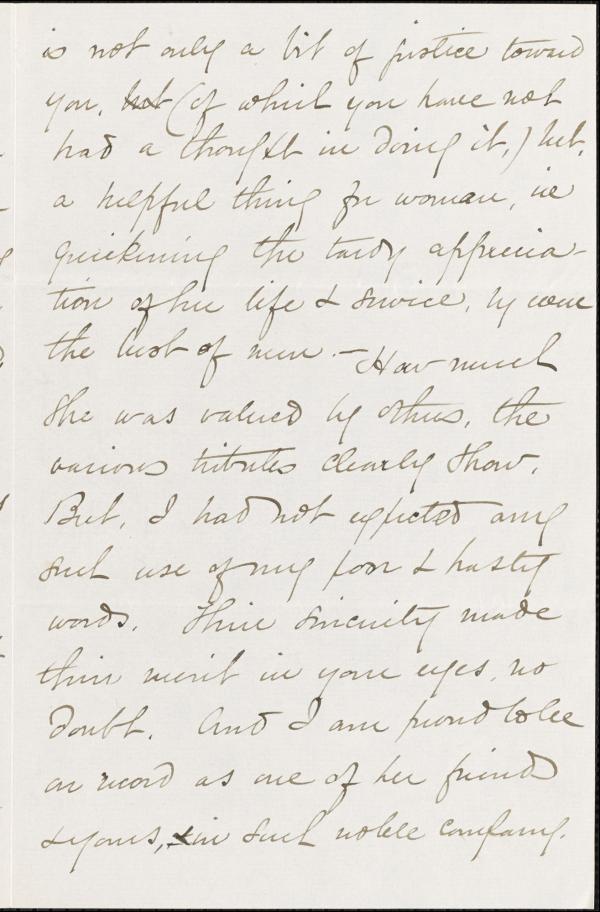 is not only a bit of justice toward
you, but (of which you have not
had a thought in doing it,) but,
a helpful thing for woman, in
quickening the tardy apprecia-
tion of her life & service, by even
the best of men. — How much
she was valued by others, the
various tributes clearly show.
But, I had not expected any
such use of my poor & hasty
words. Their sincerity made
their merit in your eyes, no
doubt. And I am proud to be
on record as one of her friends
& yours, & in such noble company.